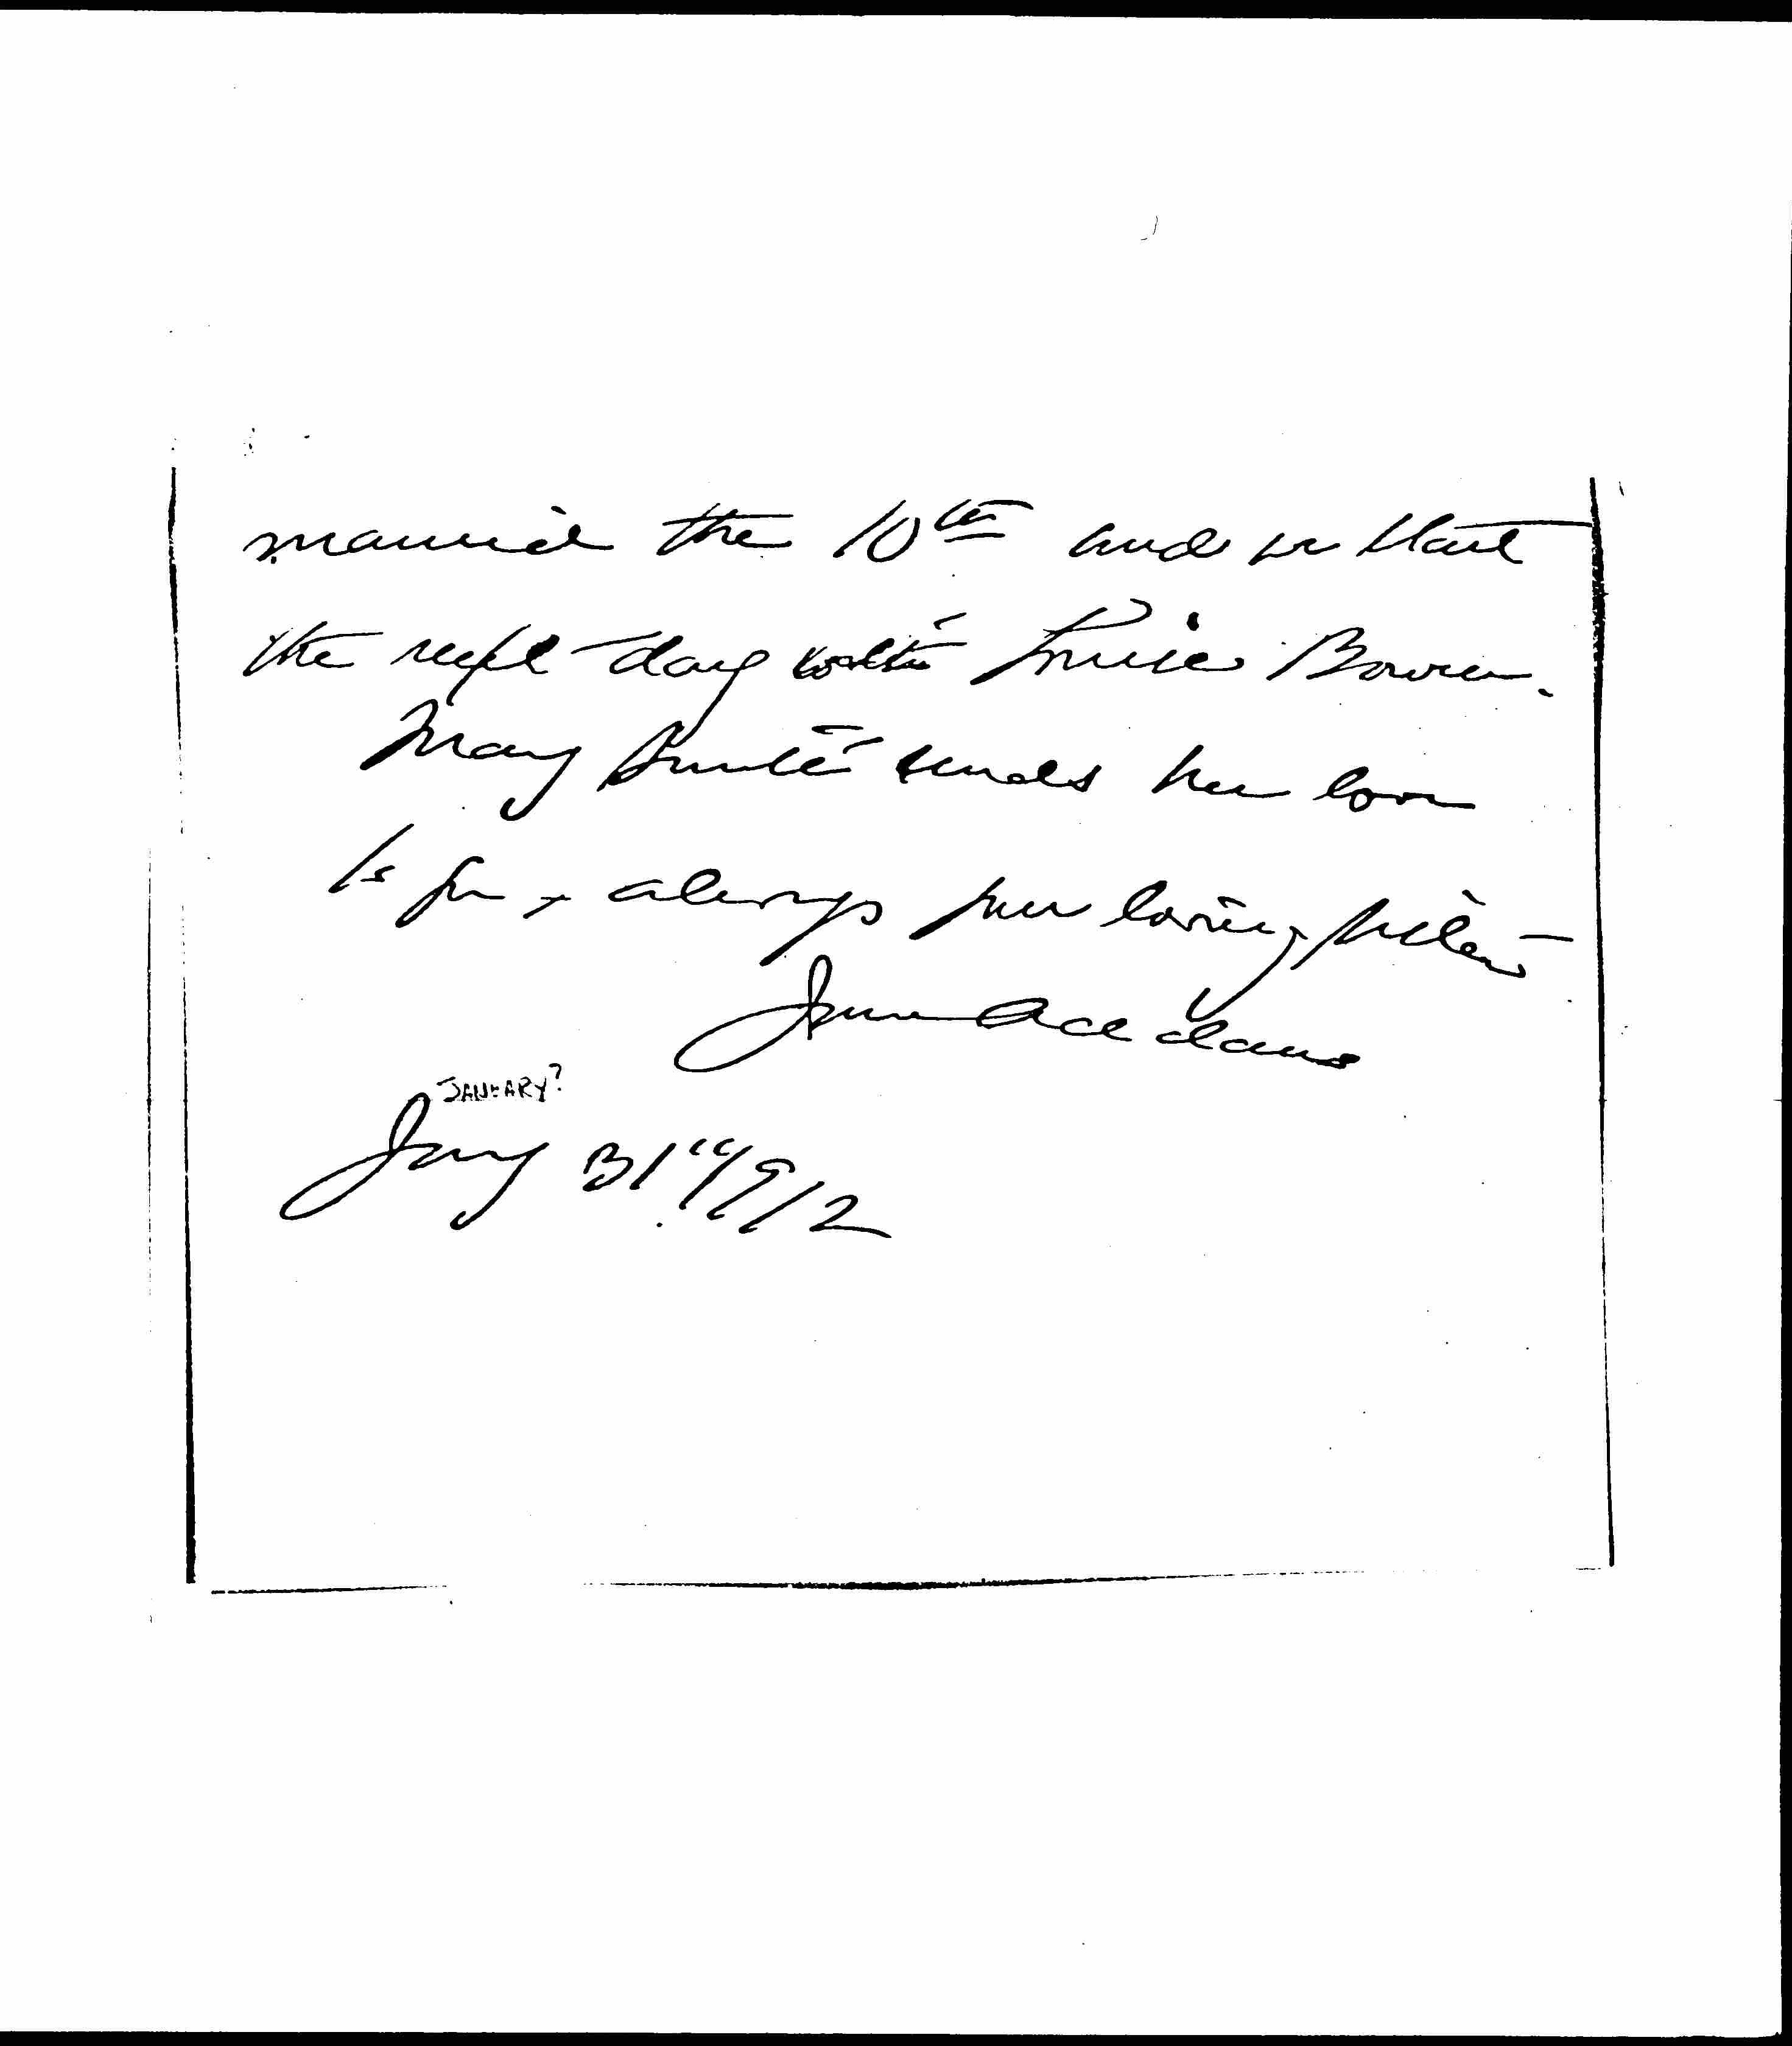 married the 10th and we start
the next day with Louise Bowen.
Mary Smith sends her love
to you + always your loving sister
Jane Addams
JANUARY?
Jany 31" 1912